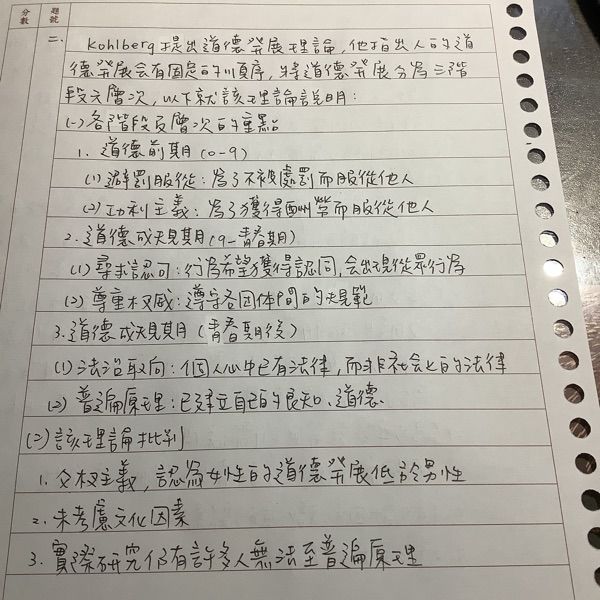 題號
分數
二、 Kohlberg提出道德發展理論，他指出人的道
德發展會有固定的順序，將道德發展分為三階
段六層次，以下就該理論說明：
(一)各階段及層次的重點
1. 道德前期(0-9)
(1)避罰服從：為了不被處罰而服從他人
(2)功利主義：為了獲得酬勞而服從他人
2. 道德成規期(9-青春期)
(1)尋求認可：行為希望獲得認同，會出現從眾行為
(2)尊重权威：遵守各团体間的規範
3. 道德成規期(青春期後)
(1)法治取向：個人心中已有法律，而非社會上的法律
(2)普遍原理：已建立自己的良知、道德.
(二)該理論批判
1. 父权主義，認為女性的道德發展低於男性
2. 未考慮文化因素
3. 實際研究仍有許多人無法至普遍原理